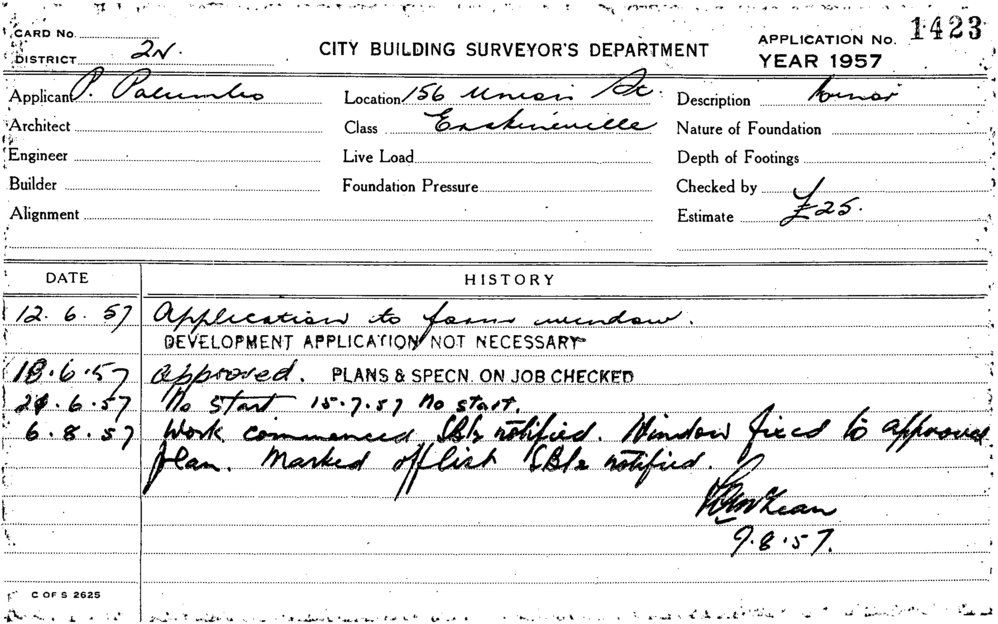 CARD No.
DISTRICT 2N.
CITY BUILDING SURVEYOR'S DEPARTMENT
APPLICATION No. 1423
YEAR 1957
Applicant P. Palumbo Location 156 Union St. Description Minor
Architect Class Erskineville Nature of Foundation
Engineer Live Load Depth of Footings
Builder Foundation Pressure Checked by
Alignment Estimate £25.
DATE HISTORY
12.6.57 Application to form window.
DEVELOPMENT APPLICATION NOT NECESSARY
18.6.57 approved. PLANS & SPECN. ON JOB CHECKED
.6.57 No start 15.7.57 No start.
6.8.57 Work commenced notified. Window fixed to approved
plan. Marked off list notified.
9.8.57.
C OF S 2625